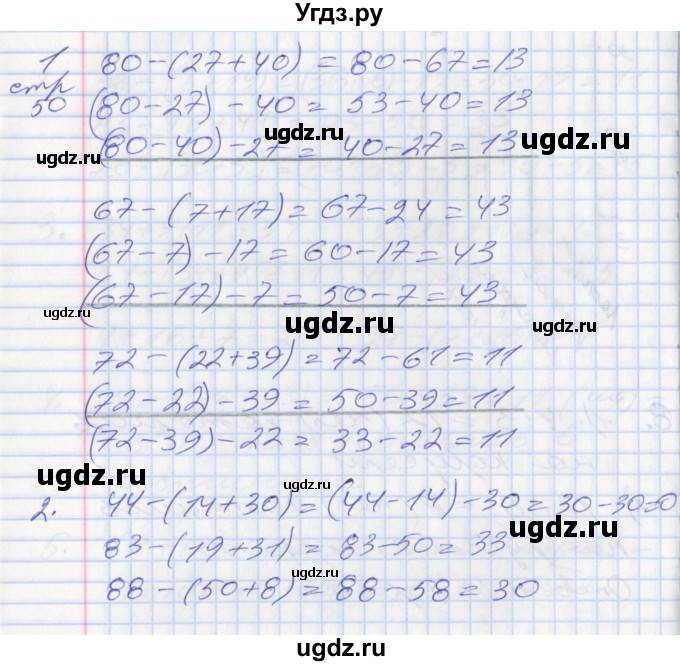 Угдз.ру
1 80-(27+40) = 80-67=13
стр
50 (80-27)-40= 53-40=13
ugdz.ru
ugdz.ru
ugdz.ru
(80-40)-27= 40-27=13
67-(7+17)=67-24=43
(67-7)-17=60-17=43
(67-17)-7=50-7=43
ugdz.ru
ugdz.ru
ugdz.ru
72-(22+39)=72-61=11
(72-22)-39=50-39=11
(72-39)-22= 33-22=11
ugdz.ru
ugdz.ru
2. 44-(14+30)=(44-14)-30=30-30=0
ugdz.ru
83-(19+31)=83-50=33
ugdz.ru
88-(50+8)=88-58=30
ugdz.ru